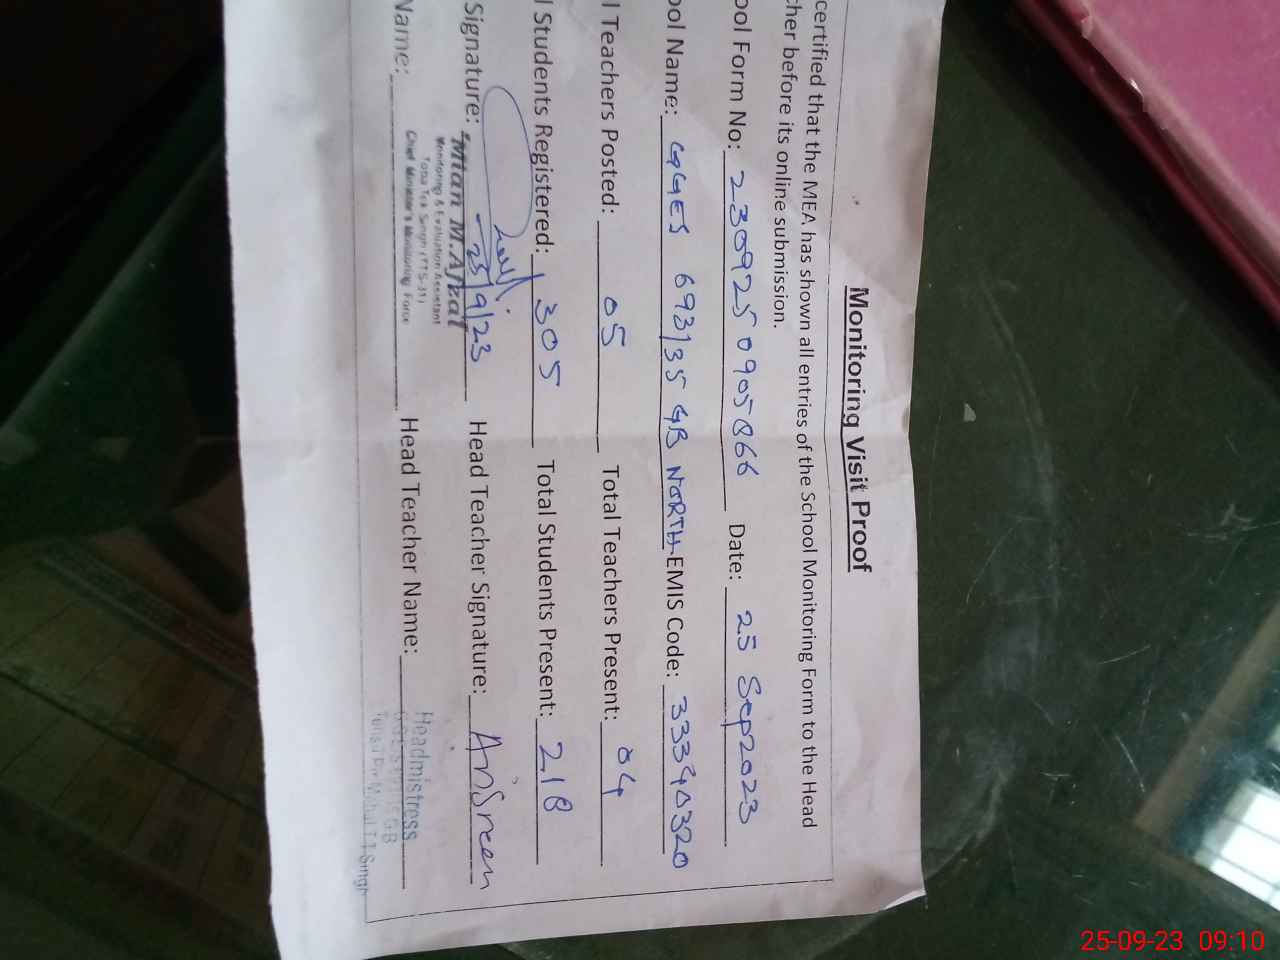 Monitoring Visit Proof
certified that the MEA has shown all entries of the School Monitoring Form to the Head
cher before its online submission.
ool Form No: 2309250905866 Date: 25 Sep2023
ool Name: GGES 693/35 GB NORTH EMIS Code: 33340320
l Teachers Posted: 05 Total Teachers Present: 04
l Students Registered: 305 Total Students Present: 218
Signature: 25/9/23 Head Teacher Signature:
Mian M.Afzal
Monitoring & Evaluation Assistant
Toba Tek Singh (TTS-31)
Chief Minister's Monitoring Force
Name: Head Teacher Name:
Headmistress
GB
Mahal T.T.Singh
25-09-23 09:10